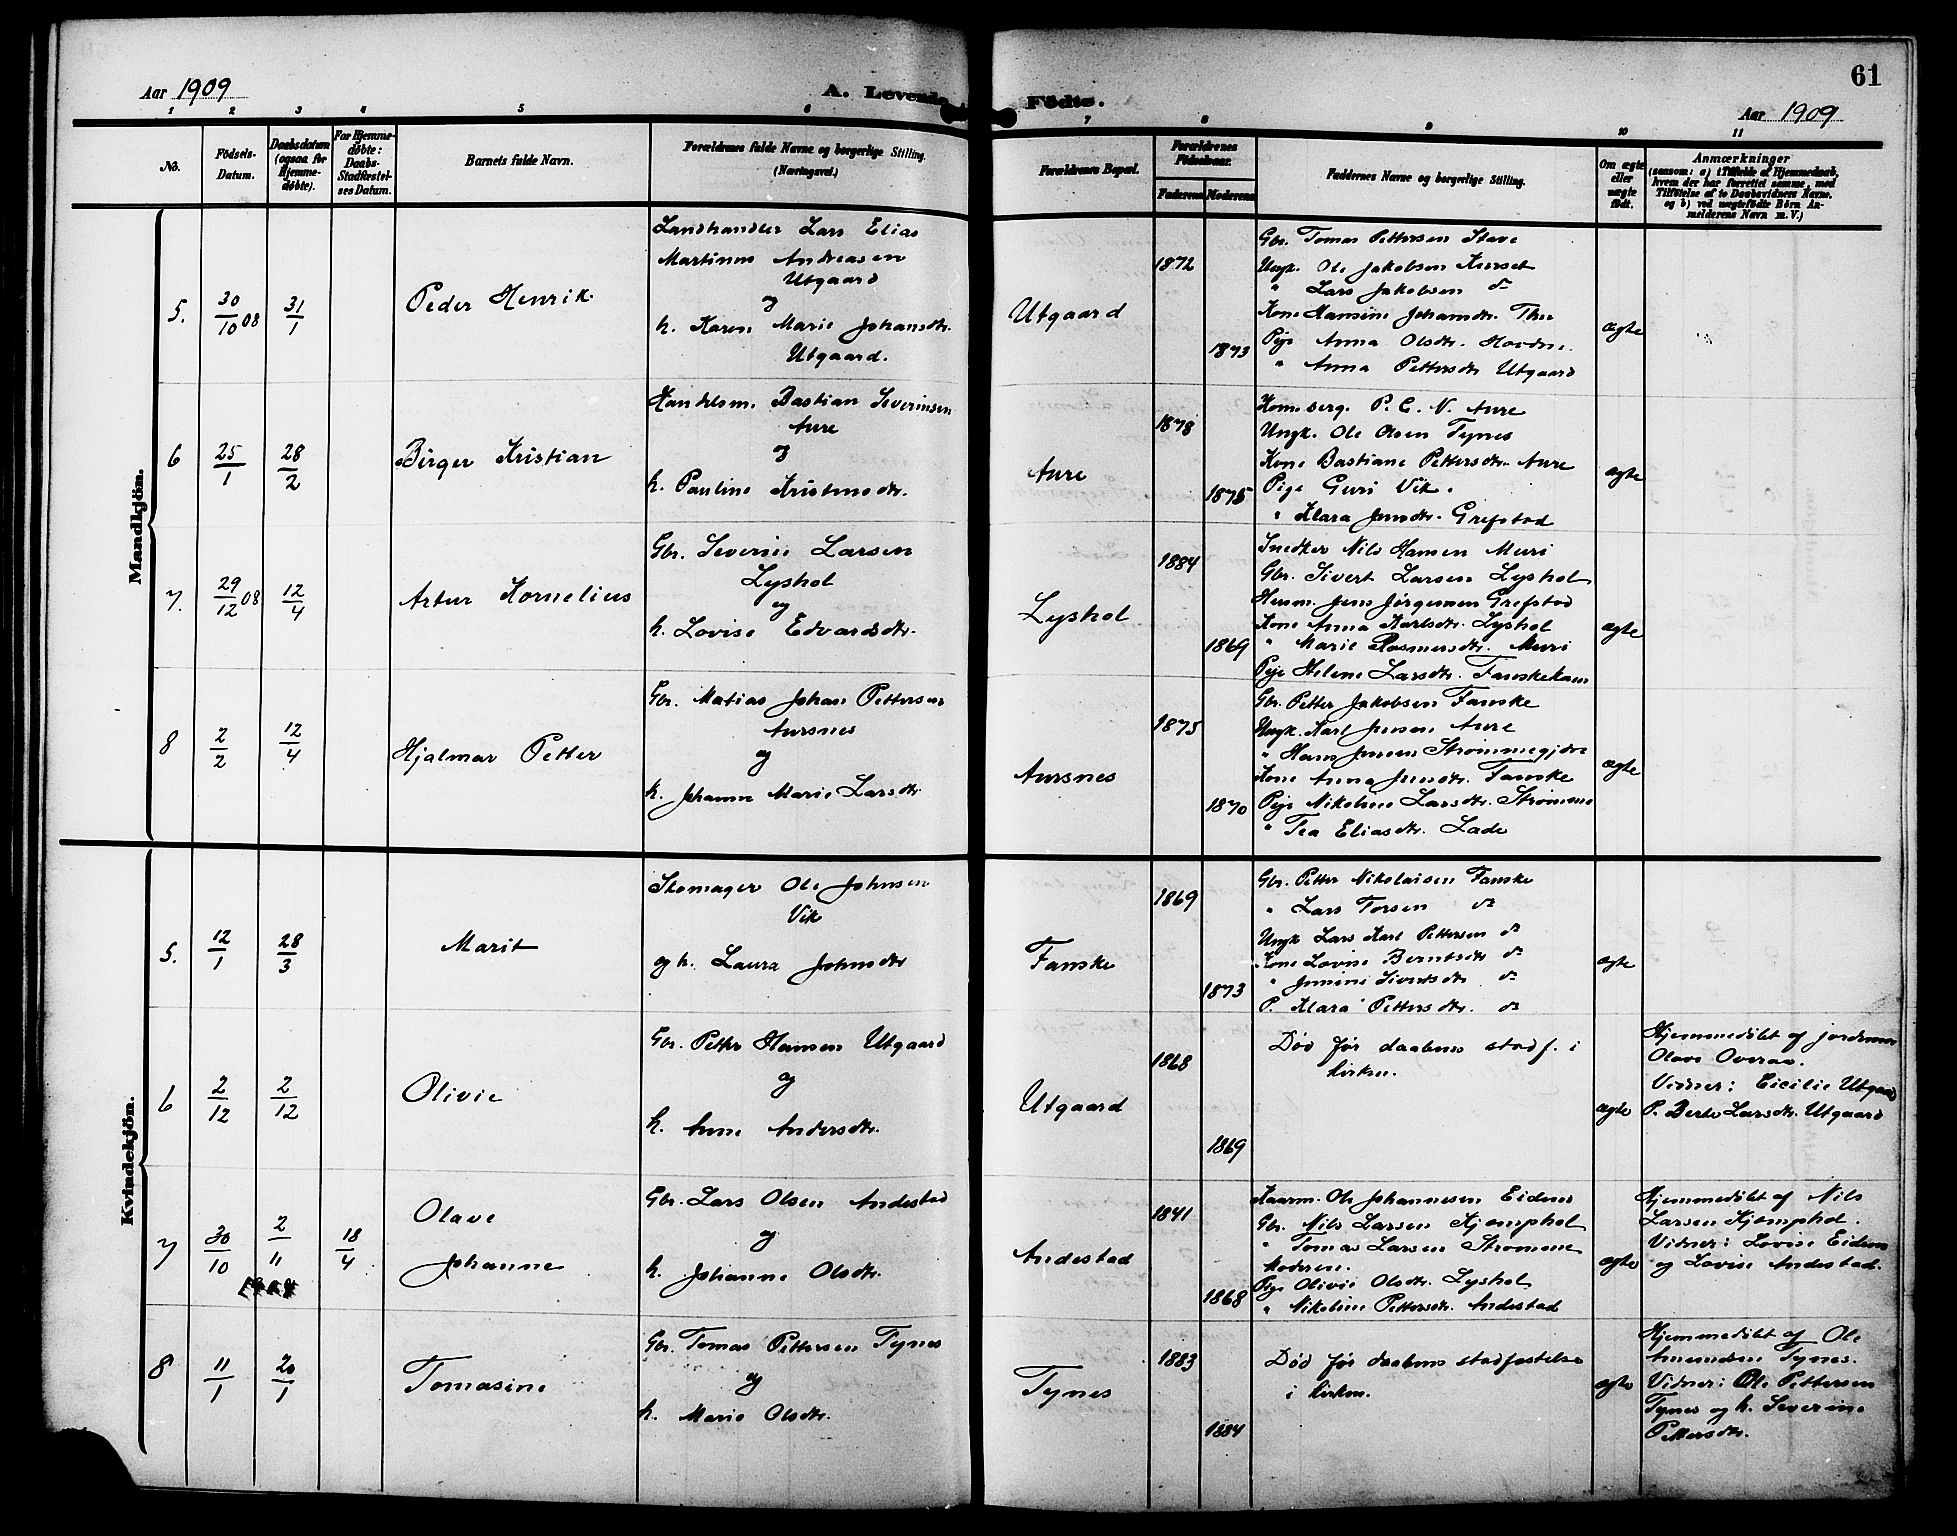 61
Aar 1909
A. Levende Fødte.
Aar 1909
1 2 3 4 5 6 7 8 9 10 11
No.
Födsels-
Datum.
Daabsdatum
(ogsaa for
Hjemme-
døbte).
For Hjemme-
døbte:
Daabs-
Stadfæstel-
ses Datum.
Barnets fulde Navn.
Forældrenes fulde Navne og borgerlige Stilling.
(Næringsvei.)
Forældrenes Bopæl.
Forældrenes
Fødselsaar.
Faderens Moderens
Faddernes Navne og borgerlige Stilling.
Om ægte
eller
uægte
født.
Anmærkninger
(saasom: a) i Tilfælde af Hjemmedaab,
hvem der har forrettet samme, med
Tilføielse af to Daabsvidners Navne.
og b) ved uægtefødte Börn An-
melderens Navn m. V.)
Mandkjön.
5.
30/10 08
31/1
Peder Henrik
Landhandler Lars Elias
Martinus Andreasen
Utgaard
og
h. Karen Marie Johansdtr.
Utgaard.
Utgaard
1872
1873
Gbr. Tomas Pettersen Stave
Ungk. Ole Jakobsen Kurset
" Lars Jakobsen do
Kone Hansine Johansdtr. Thu
Pige Anna Olsdtr. Hovdn.
" Anna Pettersdtr Utgaard
ægte
6
25/1
28/2
Birger Kristian
Handelsm. Bastian Severinsen
Aure
og
h. Pauline Kristinedtr.
Aure
1878
1875
P. C. N. Aure
Ungk. Ole Olsen Tynes
Kone Bastiane Pettersdtr. Aure
Pige Guri Vik.
" Klara Jensdtr. Grefstad
ægte
7.
29/12 08
12/4
Artur Kornelius
Gbr. Severin Larsen
Lyshol
og
h. Lovise Edvardsdtr.
Lyshol
1884
1869
Snedker Nils Hansen Muri
Gbr. Sivert Larsen Lyshol
Husm. Jens Jørgensen Grefstad
Kone Anna Karlsdtr. Lyshol
" Marie Rasmusdtr. Muri
Pige Helene Larsdtr. Fanskekam
ægte
8
2/2
12/4
Hjalmar Petter
Gbr. Matias Johan Pettersen
Aursnes
og
h. Johanne Marie Larsdtr
Aursnes
1875
1870
Gbr. Petter Jakobsen Fanske
Ungk. Karl Jensen Aure
" Hans Jensen Strømmegjære
Kone Anna Jensdtr. Fanske
Pige Nikoline Larsdtr. Strømme
" Tea Eliasdtr. Lade
ægte
Kvindekjön.
5.
12/1
28/3
Marit
Skomager Ole Johnsen
Vik
og h. Laura Johnsdtr
Fanske
1869
1873
Gbr. Petter Nikolaisen Fanske
" Lars Torsen do
Ungk Lars Karl Pettersen do
Kone Lovise Berntsdtr do
" Jensine Sivertsdtr do
P. Klara Pettersdtr. do
ægte
6
2/12
2/12
Olivie
Gbr. Petter Hansen Utgaard
og
h. Anne Andersdtr.
Utgaard
1868
1869
Død før daabens stadf. i
kirken.
ægte
Hjemmedöbt af jordmor
Olave Overaa.
Vidner: Cicilie Utgaard
P. Berte Larsdtr. Utgaard
7
30/10
2/11
1908
18/4
Olave
Johanne
Gbr. Lars Olsen Andestad
og
h. Johanne Olsdtr.
Andestad
1841
1868
Kaarm. Ole Johannesen Eidem
Gbr. Nils Larsen Kjemphol
" Tomas Larsen Strømme
Moderen.
Pige Olivie Olsdtr. Lyshol
" Nikoline Pettersdtr. Andestad
ægte
Hjemmedöbt af Nils
Larsen Kjemphol.
Vidner: Lovise Eidem
og Lovise Andestad.
8
11/1
20/1
Tomasine
Gbr. Tomas Pettersen Tynes
og
h. Marie Olsdtr.
Tynes
1883
1884
Død før daabens stadfæstelse
i kirken.
ægte
Hjemmedöbt af Ole
Amundsen Tynes.
Vidner: Ole Pettersen
Tynes og h. Severine
Pettersdtr.